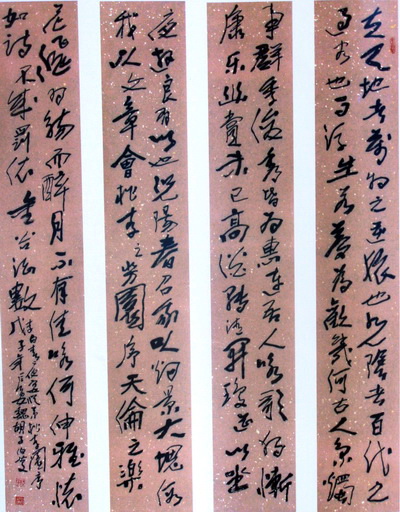 夫天地者萬物之逆旅也光陰者百代之
過客也而浮生若夢為歡幾何古人秉燭
夜遊良有以也況陽春召我以烟景大塊假
我以文章會桃李之芳園序天倫之樂
事群季俊秀皆為惠連吾人咏歌獨慚
康樂幽賞未已高談轉清開瓊筵以坐
花飛羽觴而醉月不有佳咏何伸雅懷
如詩不成罰依金谷酒數
李白春夜宴桃李園序
戊子年